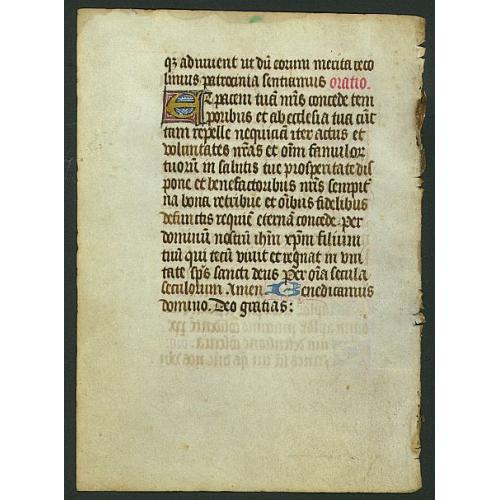 q3 adiuuent ut dū eorum merita reco
limus patrocinia sentiamus oratio.
Et pacem tuā nr̄is concede tem
poribus et ab ecclesia tua cūc
tam repelle nequiciā iter actus et
voluntates nr̄as et om̄ famulor
tuorū in salutis tue prosperitate dis
pone et benefactoribus nr̄is sempit̄
na bona retribue et oībus fidelibus
defunctis requiē eternā concede. per
dominū nostrū ihm̄ xpm̄ filium
tuū qui tecū viuit et regnat in vni
tate sp̄s sancti deus Per oīa secula
seculorum Amen. Benedicamus
domino. Deo gratias: